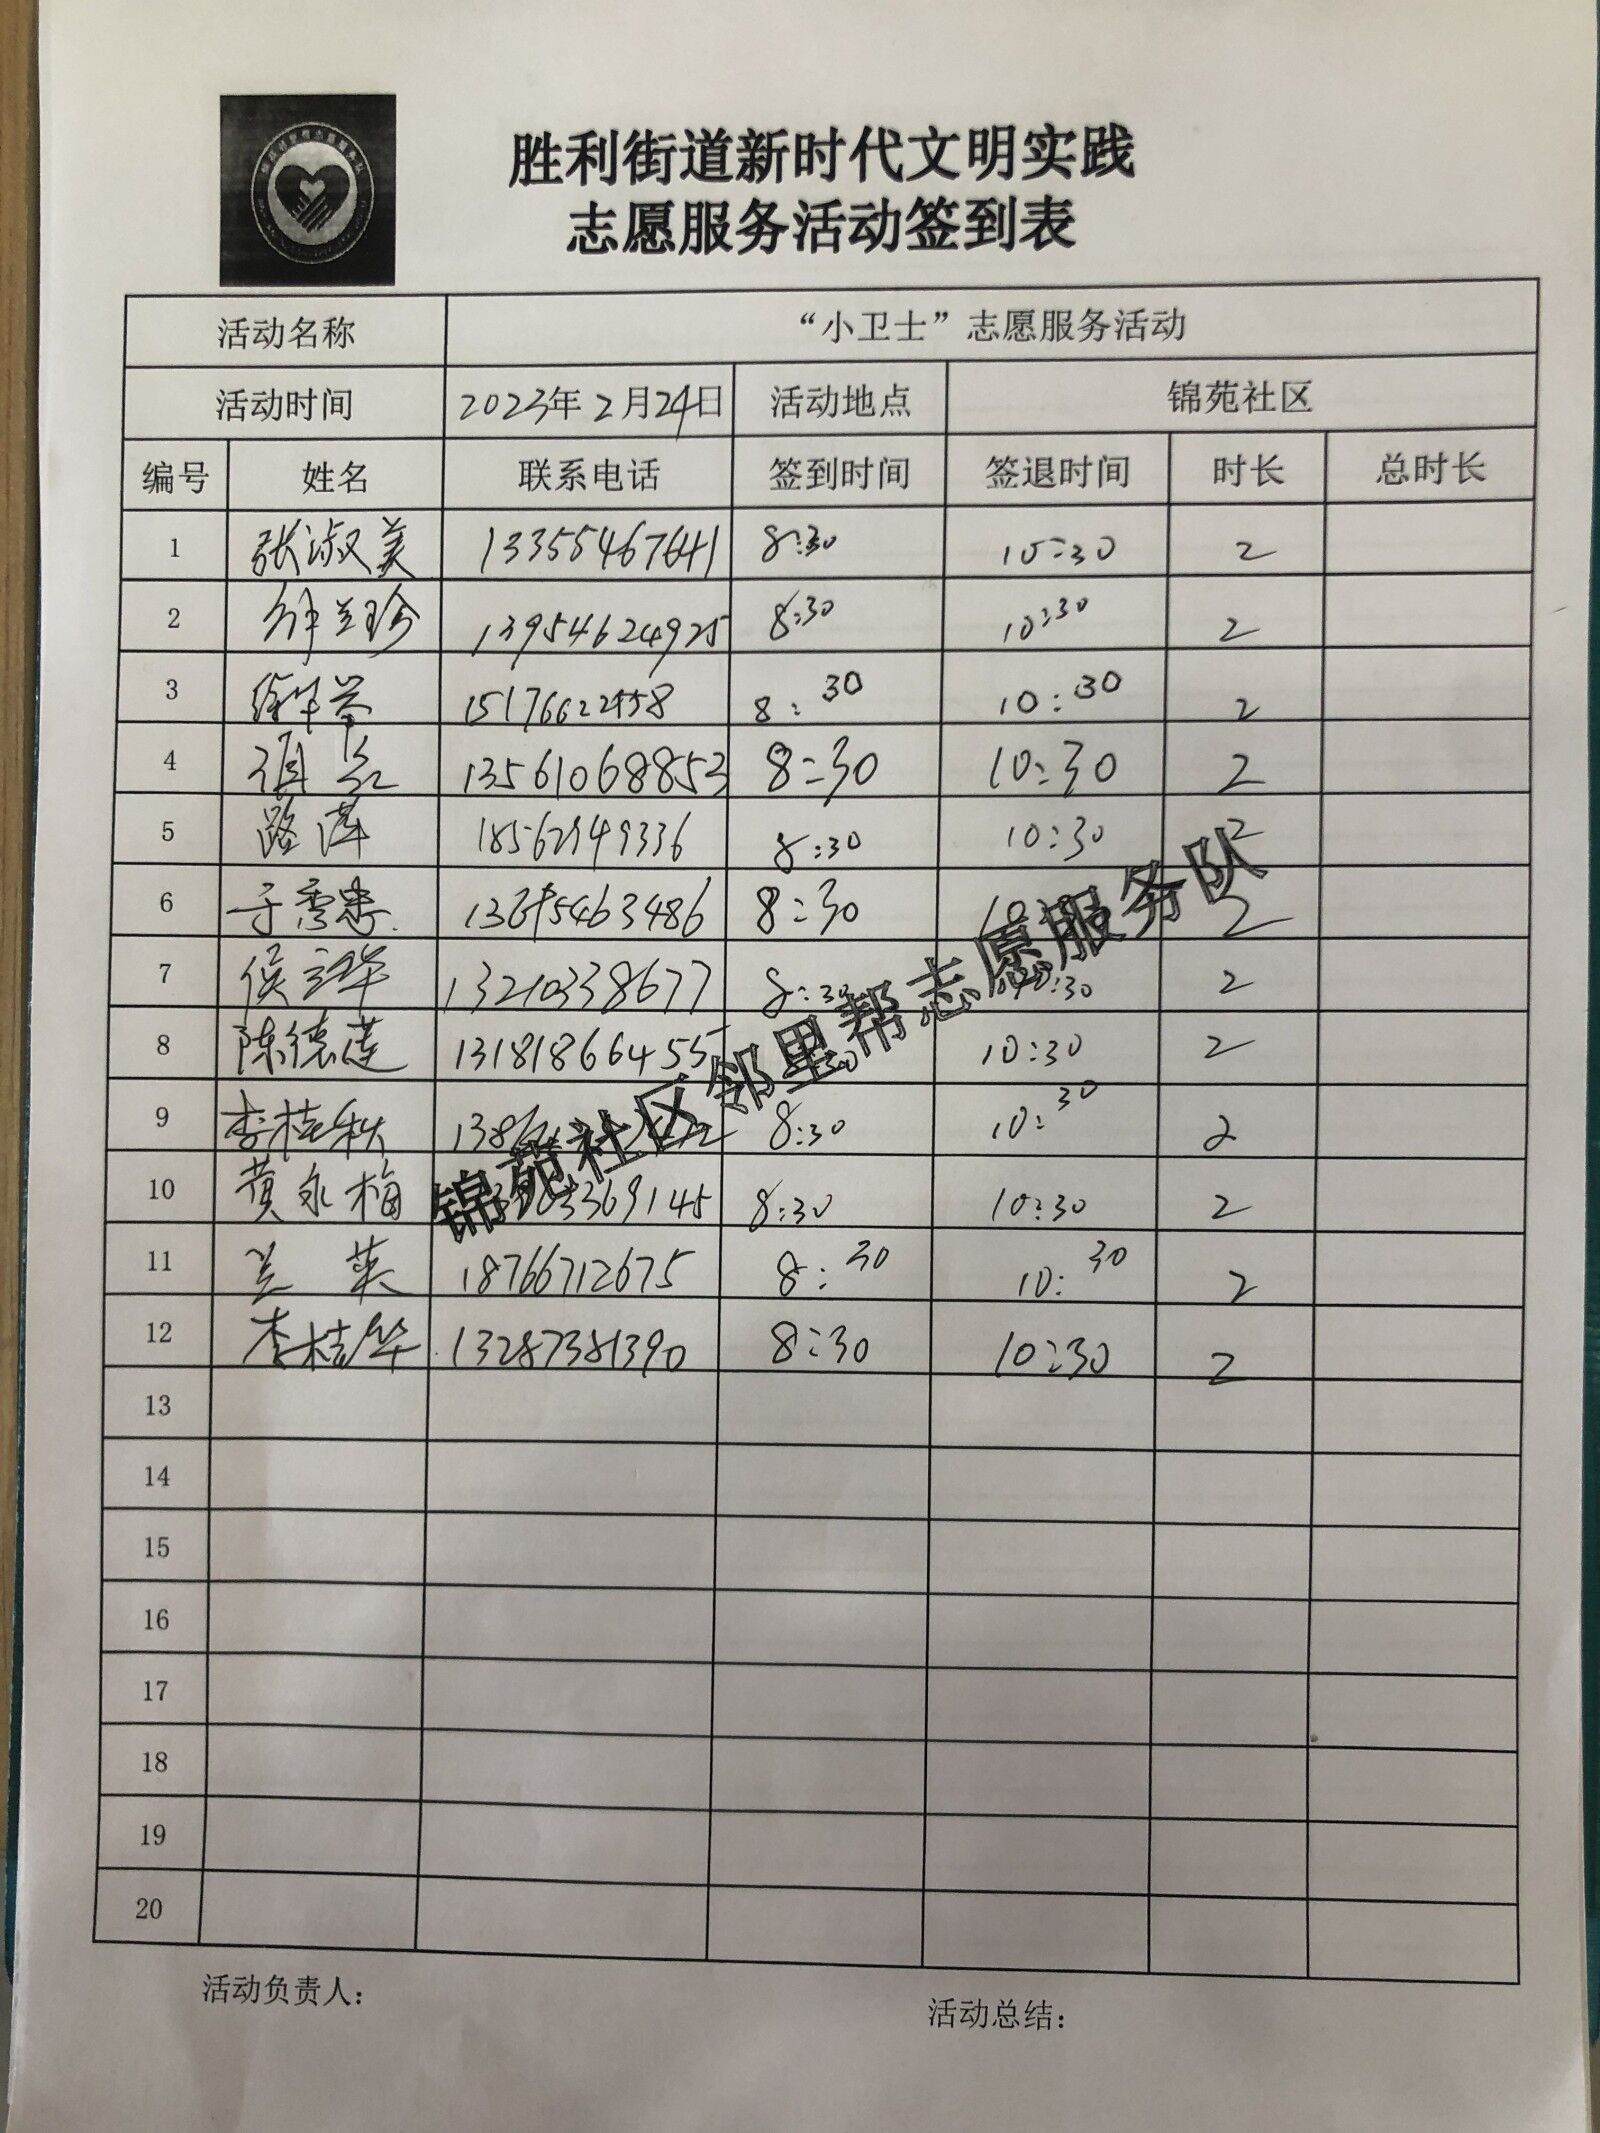 胜利街道新时代文明实践
志愿服务活动签到表
活动名称 “小卫士”志愿服务活动
活动时间 2023年2月24日 活动地点 锦苑社区
编号 姓名 联系电话 签到时间 签退时间 时长 总时长
1 张淑美 13355467641 8:30 10:30 2
2 兰珍 13954624925 8:30 10:30 2
3 8:30 10:30 2
4 13561068853 8:30 10:30 2
5 路萍 18562949336 8:30 10:30 2
6 于秀忠 8:30 2
7 侯立华 13210338677 8:30 10:30 2
8 陈德莲 13181866455 10:30 2
9 李桂秋 8:30 10:30 2
10 黄永梅 8:30 10:30 2
11 兰英 18766712675 8:30 10:30 2
12 李桂华 13287381390 8:30 10:30 2
13
14
15
16
17
18
19
20
锦苑社区邻里帮志愿服务队
活动负责人：
活动总结：